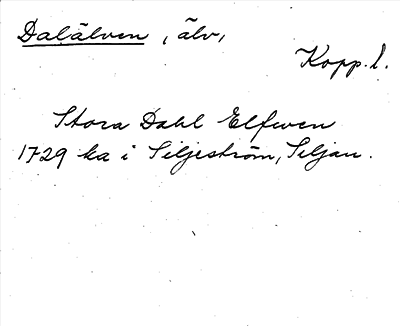 Dalälven, älv,
Kopp. l.
Stora Dahl Elfwen
1729 ka i Siljeström, Siljan.